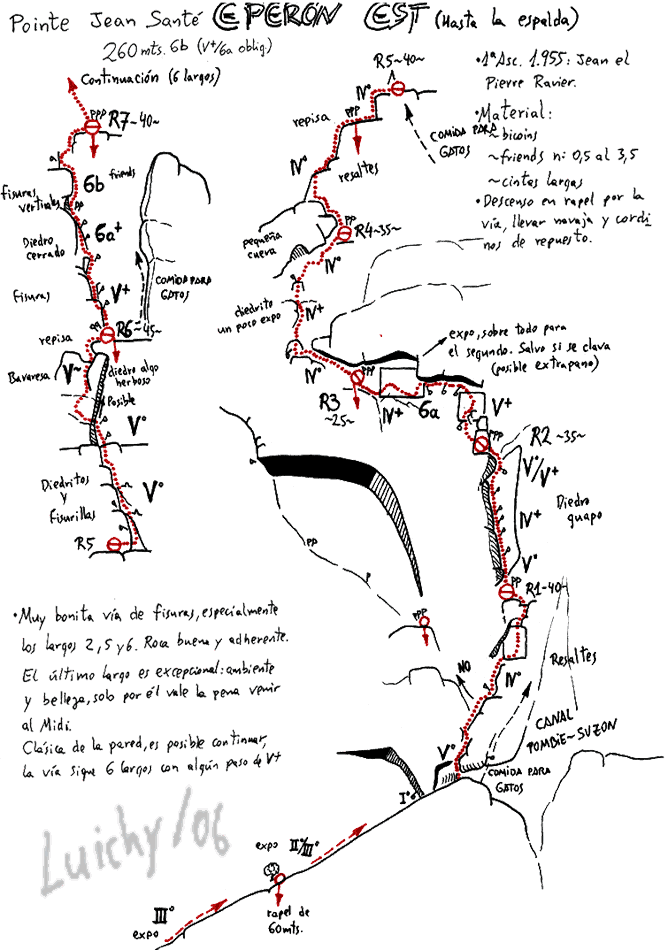 Pointe Jean Santé EPERÓN EST (Hasta la espalda)
260 mts. 6b (V+/6a oblig)
Continuación (6 largos)
PPP
R7~40~
6b
friends
fisuras
verticales
PP
6a+
Diedro
cerrado
V+
Fisuras
COMIDA PARA
GATOS
R6~45~
repisa
Bavaresa
V~
diedro algo
herboso
Posible
V°
Diedritos
y
Fisurillas
V°
R5
R5~40~
IV°
PPP
repisa
COMIDA PARA
GATOS
IV°
resaltes
PP
R4~35~
pequeña
cueva
IV°
diedrito
un poco expo
IV+
IV°
PPP
R3
~25~
IV+
6a
expo, sobre todo para
el segundo. Salvo si se clava
(posible extraplano)
V+
PPP
R2~35~
V°/V+
IV+
Diedro
guapo
V°
PP
R1-40~
•1ª Asc. 1.955: Jean el
Pierre Ravier.
•Material:
~bicoins
~friends n: 0,5 al 3,5
~cintas largas
•Descenso en rapel por la
vía, llevar navaja y cordi
nos de repuesto.
PP
P
PPP
NO
IV°
Resaltes
CANAL
TOMBIE~SUZON
V°
COMIDA PARA
GATOS
I°
•Muy bonita vía de fisuras, especialmente
los largos 2, 5 y 6. Roca buena y adherente.
El último largo es excepcional: ambiente
y belleza, solo por él vale la pena venir
al Midi.
Clásica de la pared, es posible continuar,
la vía sigue 6 largos con algún paso de V+
Luichy/06
expo II°/III°
III°
expo
rapel de
60mts.